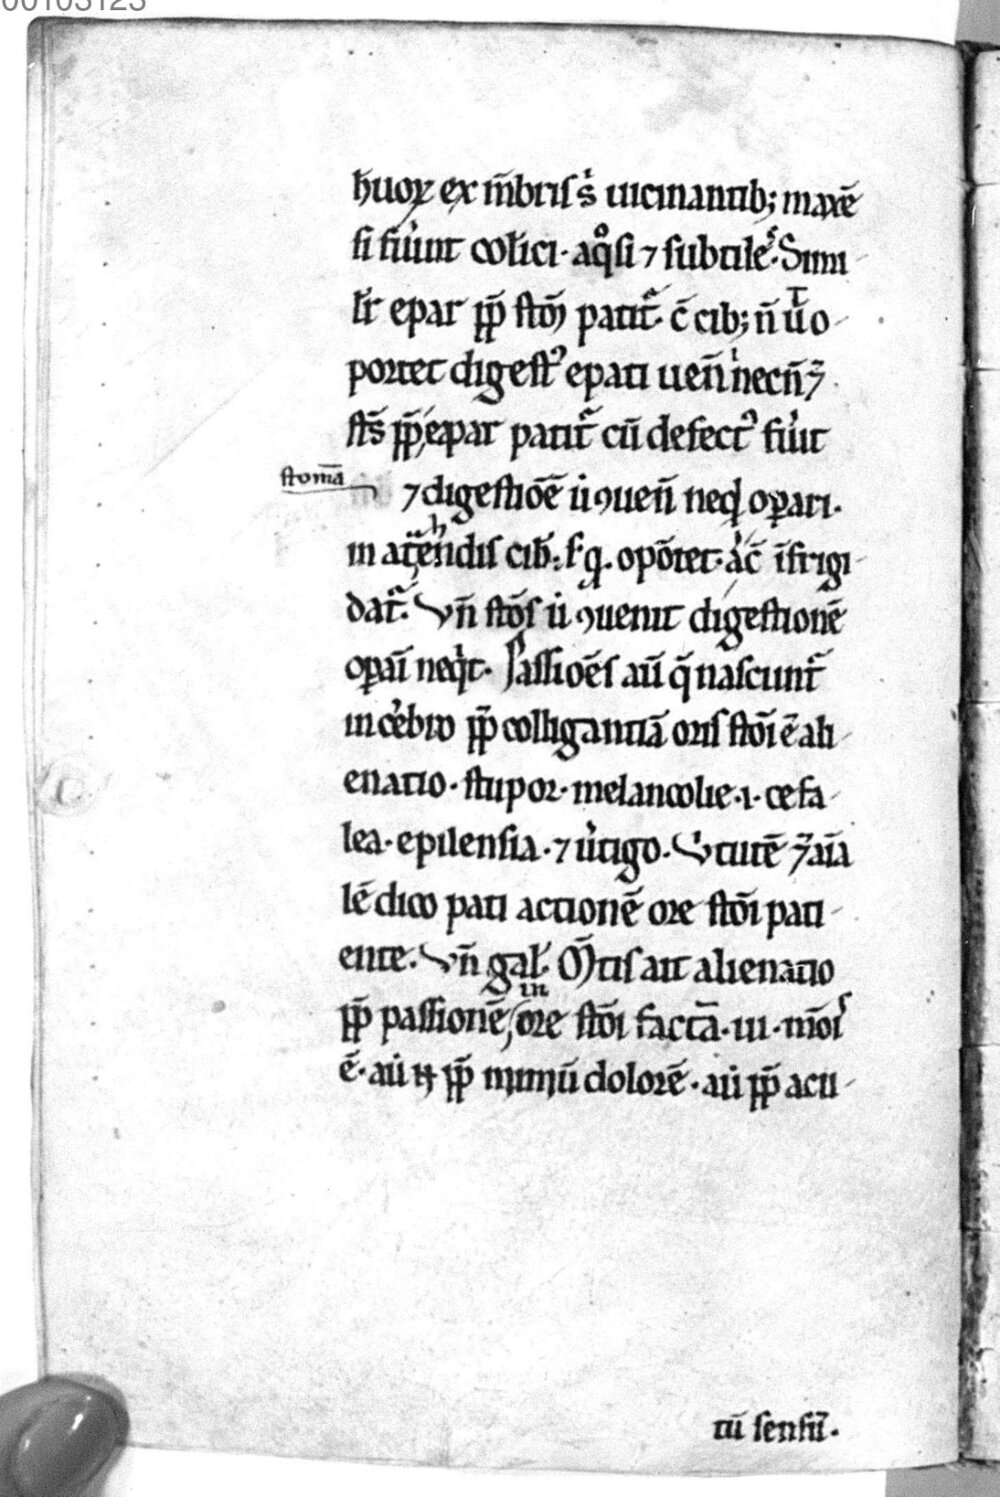 00103123
h̄uoꝝ ex m̄bris s̓ uicinantib; maxē
si fiu̓int colici · aq̊si ⁊ subtiles · Simi
lr̄ epar ꝓp̄ stōs patit᷑ · c̄ cib; n̄ ut o
portet digest᷒ epati uen̄
sts̄ ꝓp̄ epar patit᷑ cū defect᷒ fiu̓it
stomā
⁊ digestiōē u̓ ꝯuen̄ neq̄ oꝑari ·
in at̄hendis cib̄ : oportet · āc̄ īfrigi
dat᷑ · Vn̄ stōs u̓ ꝯuenit digestionē
oꝑaī neq̓t · Passiōēs aū q̄ nascunt᷑
in ce̓bro ꝓp̄ colligantiā oris stōi ē ali
enatio · stupor · melancolie · i · cefa
lea · epilensia · ⁊ u̓tigo · Virtutē aīa
lē dico pati actionē ore stōi pati
ente · Vn̄ gal̄ · ait alienatio
in
ꝓp̄ passionē ore stōi facta · iii · m̄oͥ
ē · au̓ ꝓp̄ nimiū dolorē · au̓ ꝓp̄ acu
tū sensū ·